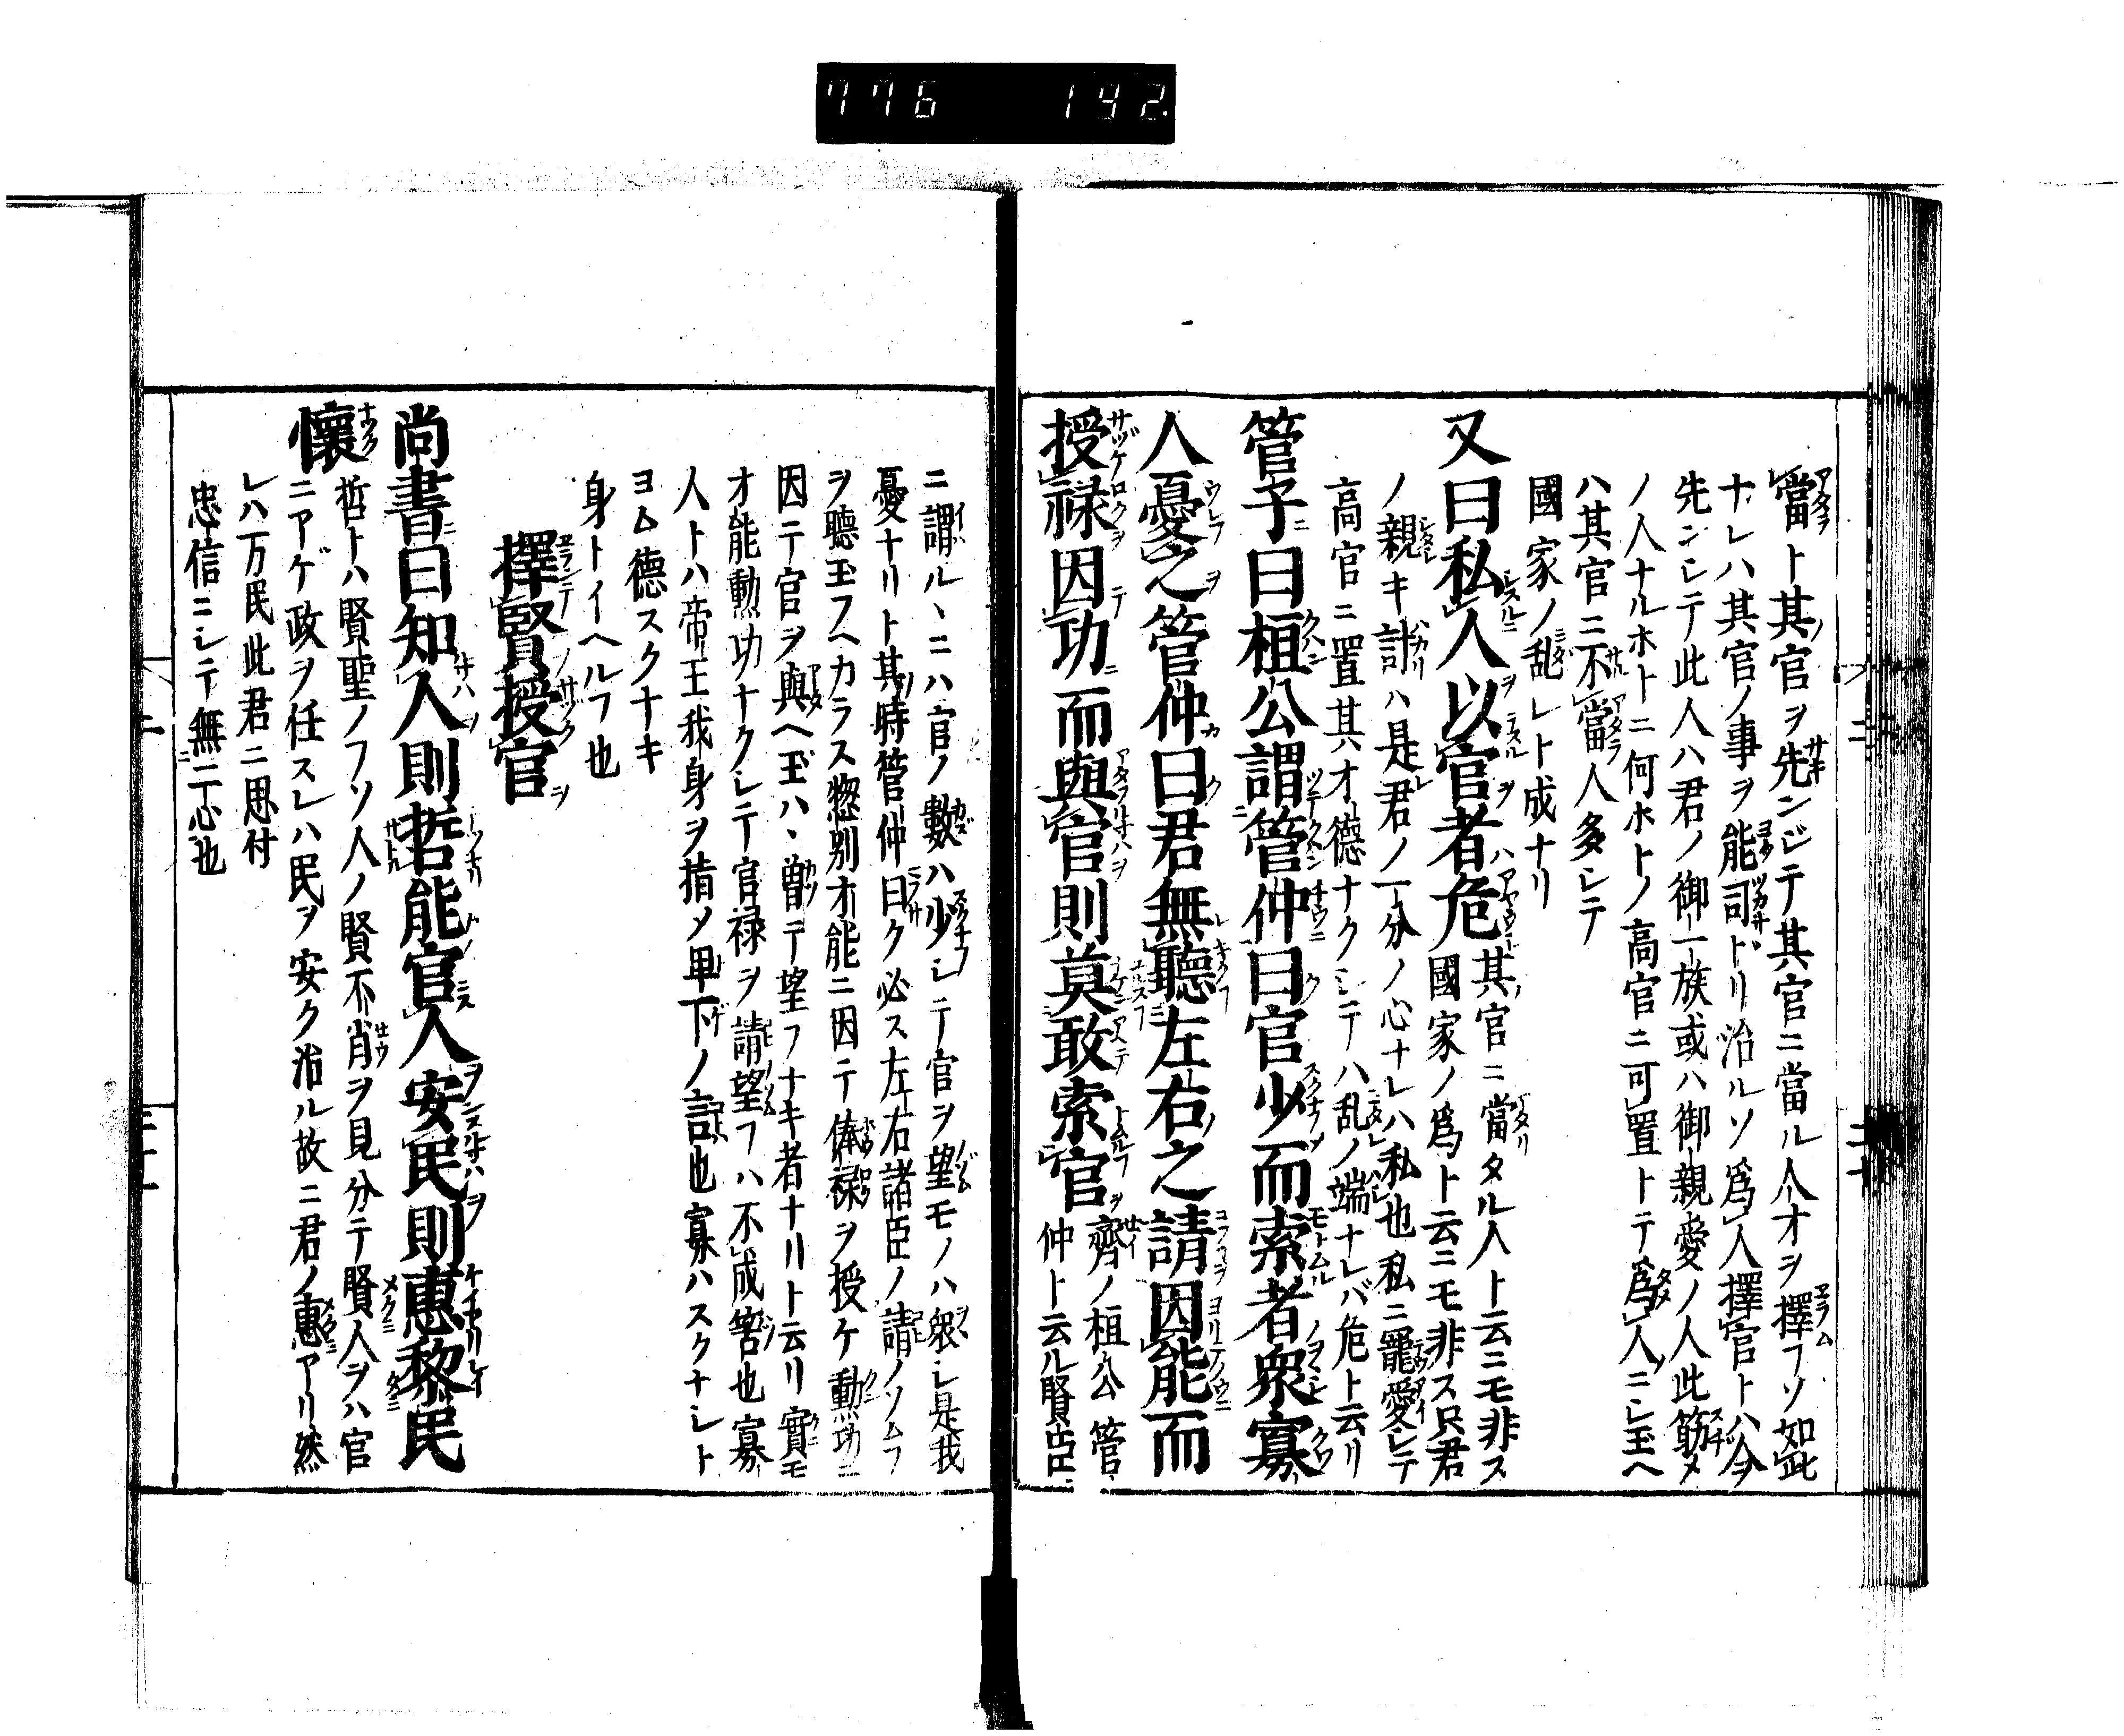 776 192.
當ト其官ヲ先ンジテ其官ニ當ル人オヲ擇フソ如此
ナレハ其官ノ事ヲ能司ドリ治ルソ爲人擇官トハ今
先ンシテ此人ハ君ノ御一族或ハ御親愛ノ人此筋メ
ノ人ナルホトニ何ホトノ高官ニ可置トテ爲人ニシ玉ヘ
ハ其官ニ不當人多シテ
國家ノ乱レト成ナリ
又曰私人以官者危其官ニ當タル人ト云ニモ非ス
國家ノ爲ト云ニモ非ス只君
ノ親キ計ハ是君ノ一分ノ心ナレハ私也私ニ寵愛シテ
高官ニ置其ハオ德ナクシテハ乱ノ端ナレバ危ト云リ
管子曰桓公謂管仲曰官少而索者衆寡
人憂之管仲曰君無聽左右之請因能而
授禄因功而與官則莫敢索官齊ノ桓公管
仲ト云ル賢臣
ニ謂ル丶ニハ官ノ數ハ少シテ官ヲ望モノハ衆シ是我
憂ナリト其時管仲曰ク必ス左右諸臣ノ請ノソムフ
ヲ聽玉フヘカラス惣別オ能ニ因テ俸禄ヲ授ケ勲功ニ
因テ官ヲ與ヘ玉ハ丶曽テ望フナキ者ナリト云リ實モ
オ能勲功ナクシテ官禄ヲ請望フハ不成筈也寡
人トハ帝王我身ヲ指メ卑下ノ詞也寡ハスクナシト
ヨム德スクナキ
身トイヘルフ也
擇賢授官
尚書曰知人則哲能官人安民則惠黎民
懷哲トハ賢聖ノフソ人ノ賢不肖ヲ見分テ賢人ヲハ官
ニアゲ政ヲ任スレハ民ヲ安ク治ル故ニ君ノ惠アリ然
レハ万民此君ニ思付
忠信ニシテ無二心也